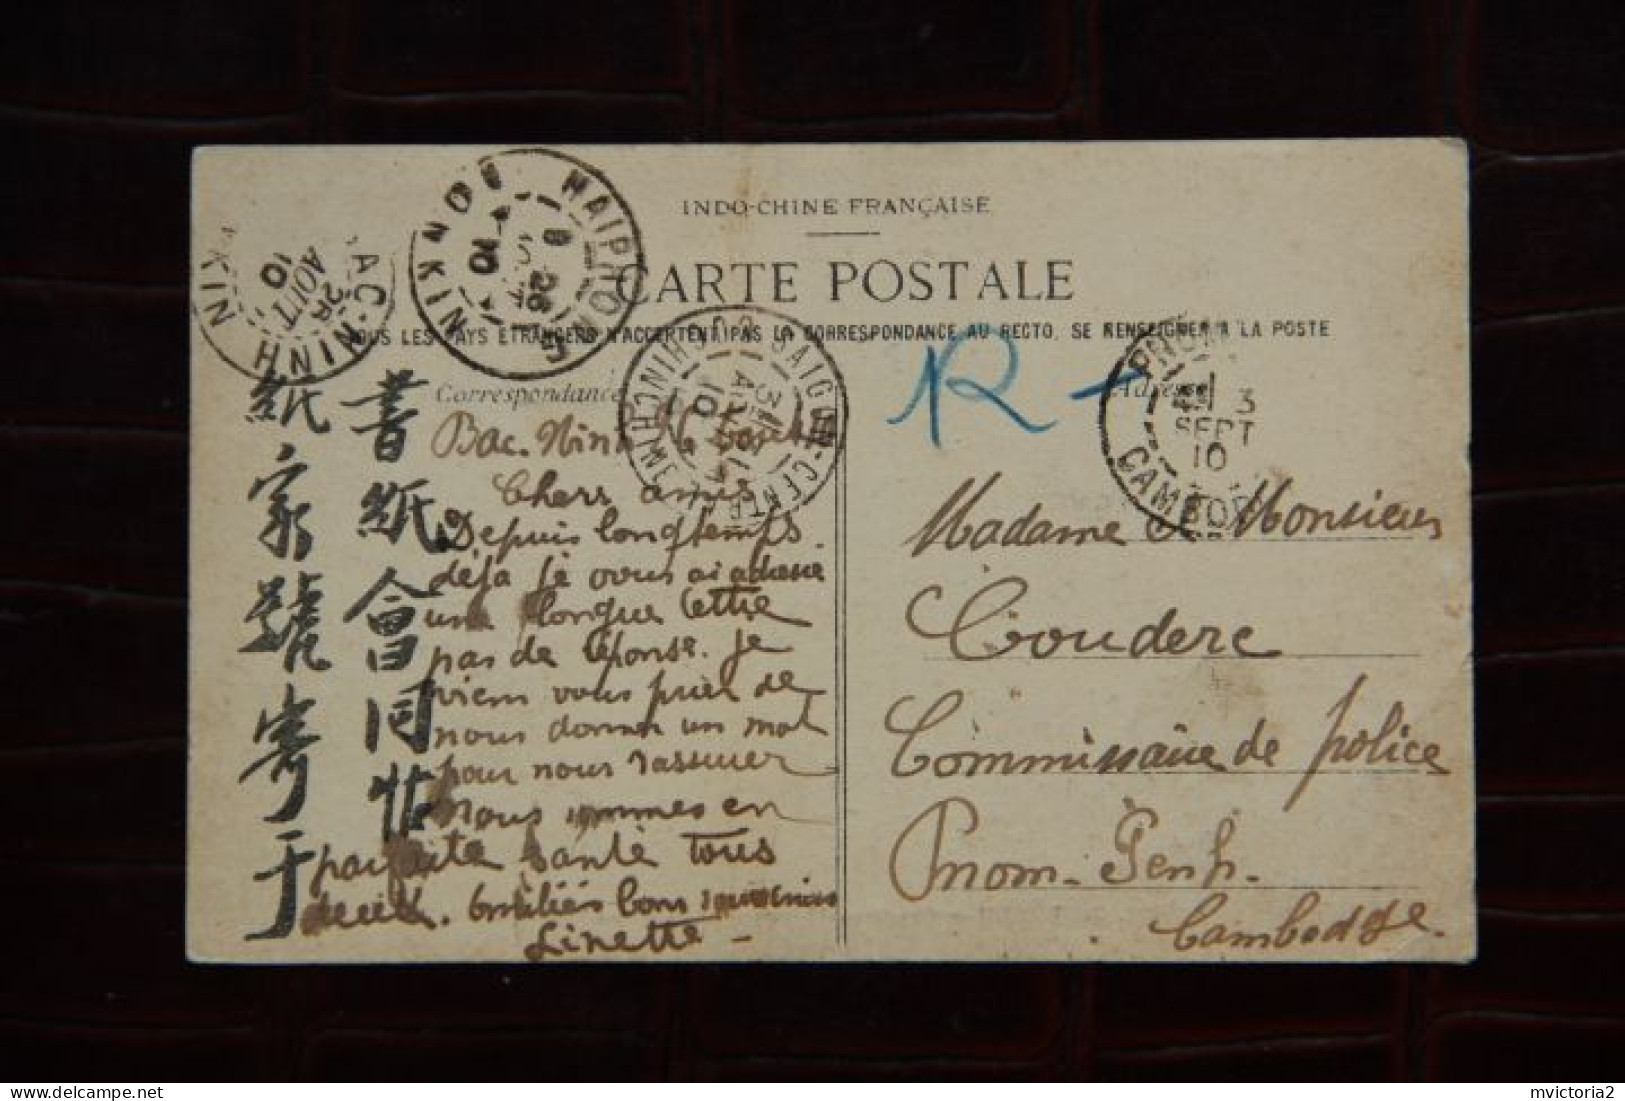 INDO-CHINE FRANÇAISE
CARTE POSTALE
TOUS LES PAYS ÉTRANGERS N'ACCEPTENT PAS LA CORRESPONDANCE AU RECTO. SE RENSEIGNER A LA POSTE
BAC-NINH
TONKIN
25
AOUT
10
HAIPHONG
TONKIN
26
AOUT
10
SAIGON-CENTRAL
COCHINCHINE
31
AOUT
10
PNOM-PENH
CAMBODGE
3
SEPT
10
R -
Correspondance
Adresse
書紙會同帖
紙家號寄于
Bac-Ninh 26 août
Chers amis
Depuis longtemps
déjà je vous ai adressé
une longue lettre
pas de réponse. Je
viens vous prier de
nous donner un mot
pour nous rassurer
Nous sommes en
parfaite santé tous
deux. Amitiés bons souvenirs
Linette -
Madame & Monsieur
Couderc
Commissaire de police
Pnom-Penh-
Cambodge.
mvictoria2